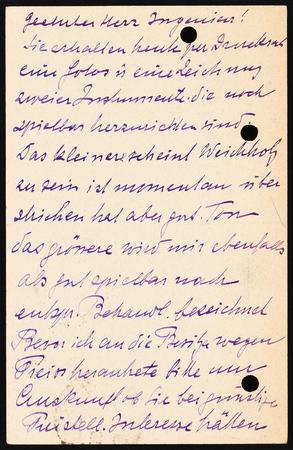 Geehrter Herr Ingenieur!
Sie erhalten heute per Drucksache
eine Fotos u eine Zeichnung
zweier Instrumente die noch
spielbar herzurichten sind.
Das kleinere scheint Weichholz
zu sein ist momentan über
strichen hat aber gut. Ton
das grössere wird mir ebenfalls
als gut spielbar nach
entspr. Behandl. bezeichnet
Bevor ich an die Besitzer wegen
Preis herantrete bitte um
Auskunft ob Sie bei günstige
Preisstell. Interesse hätten